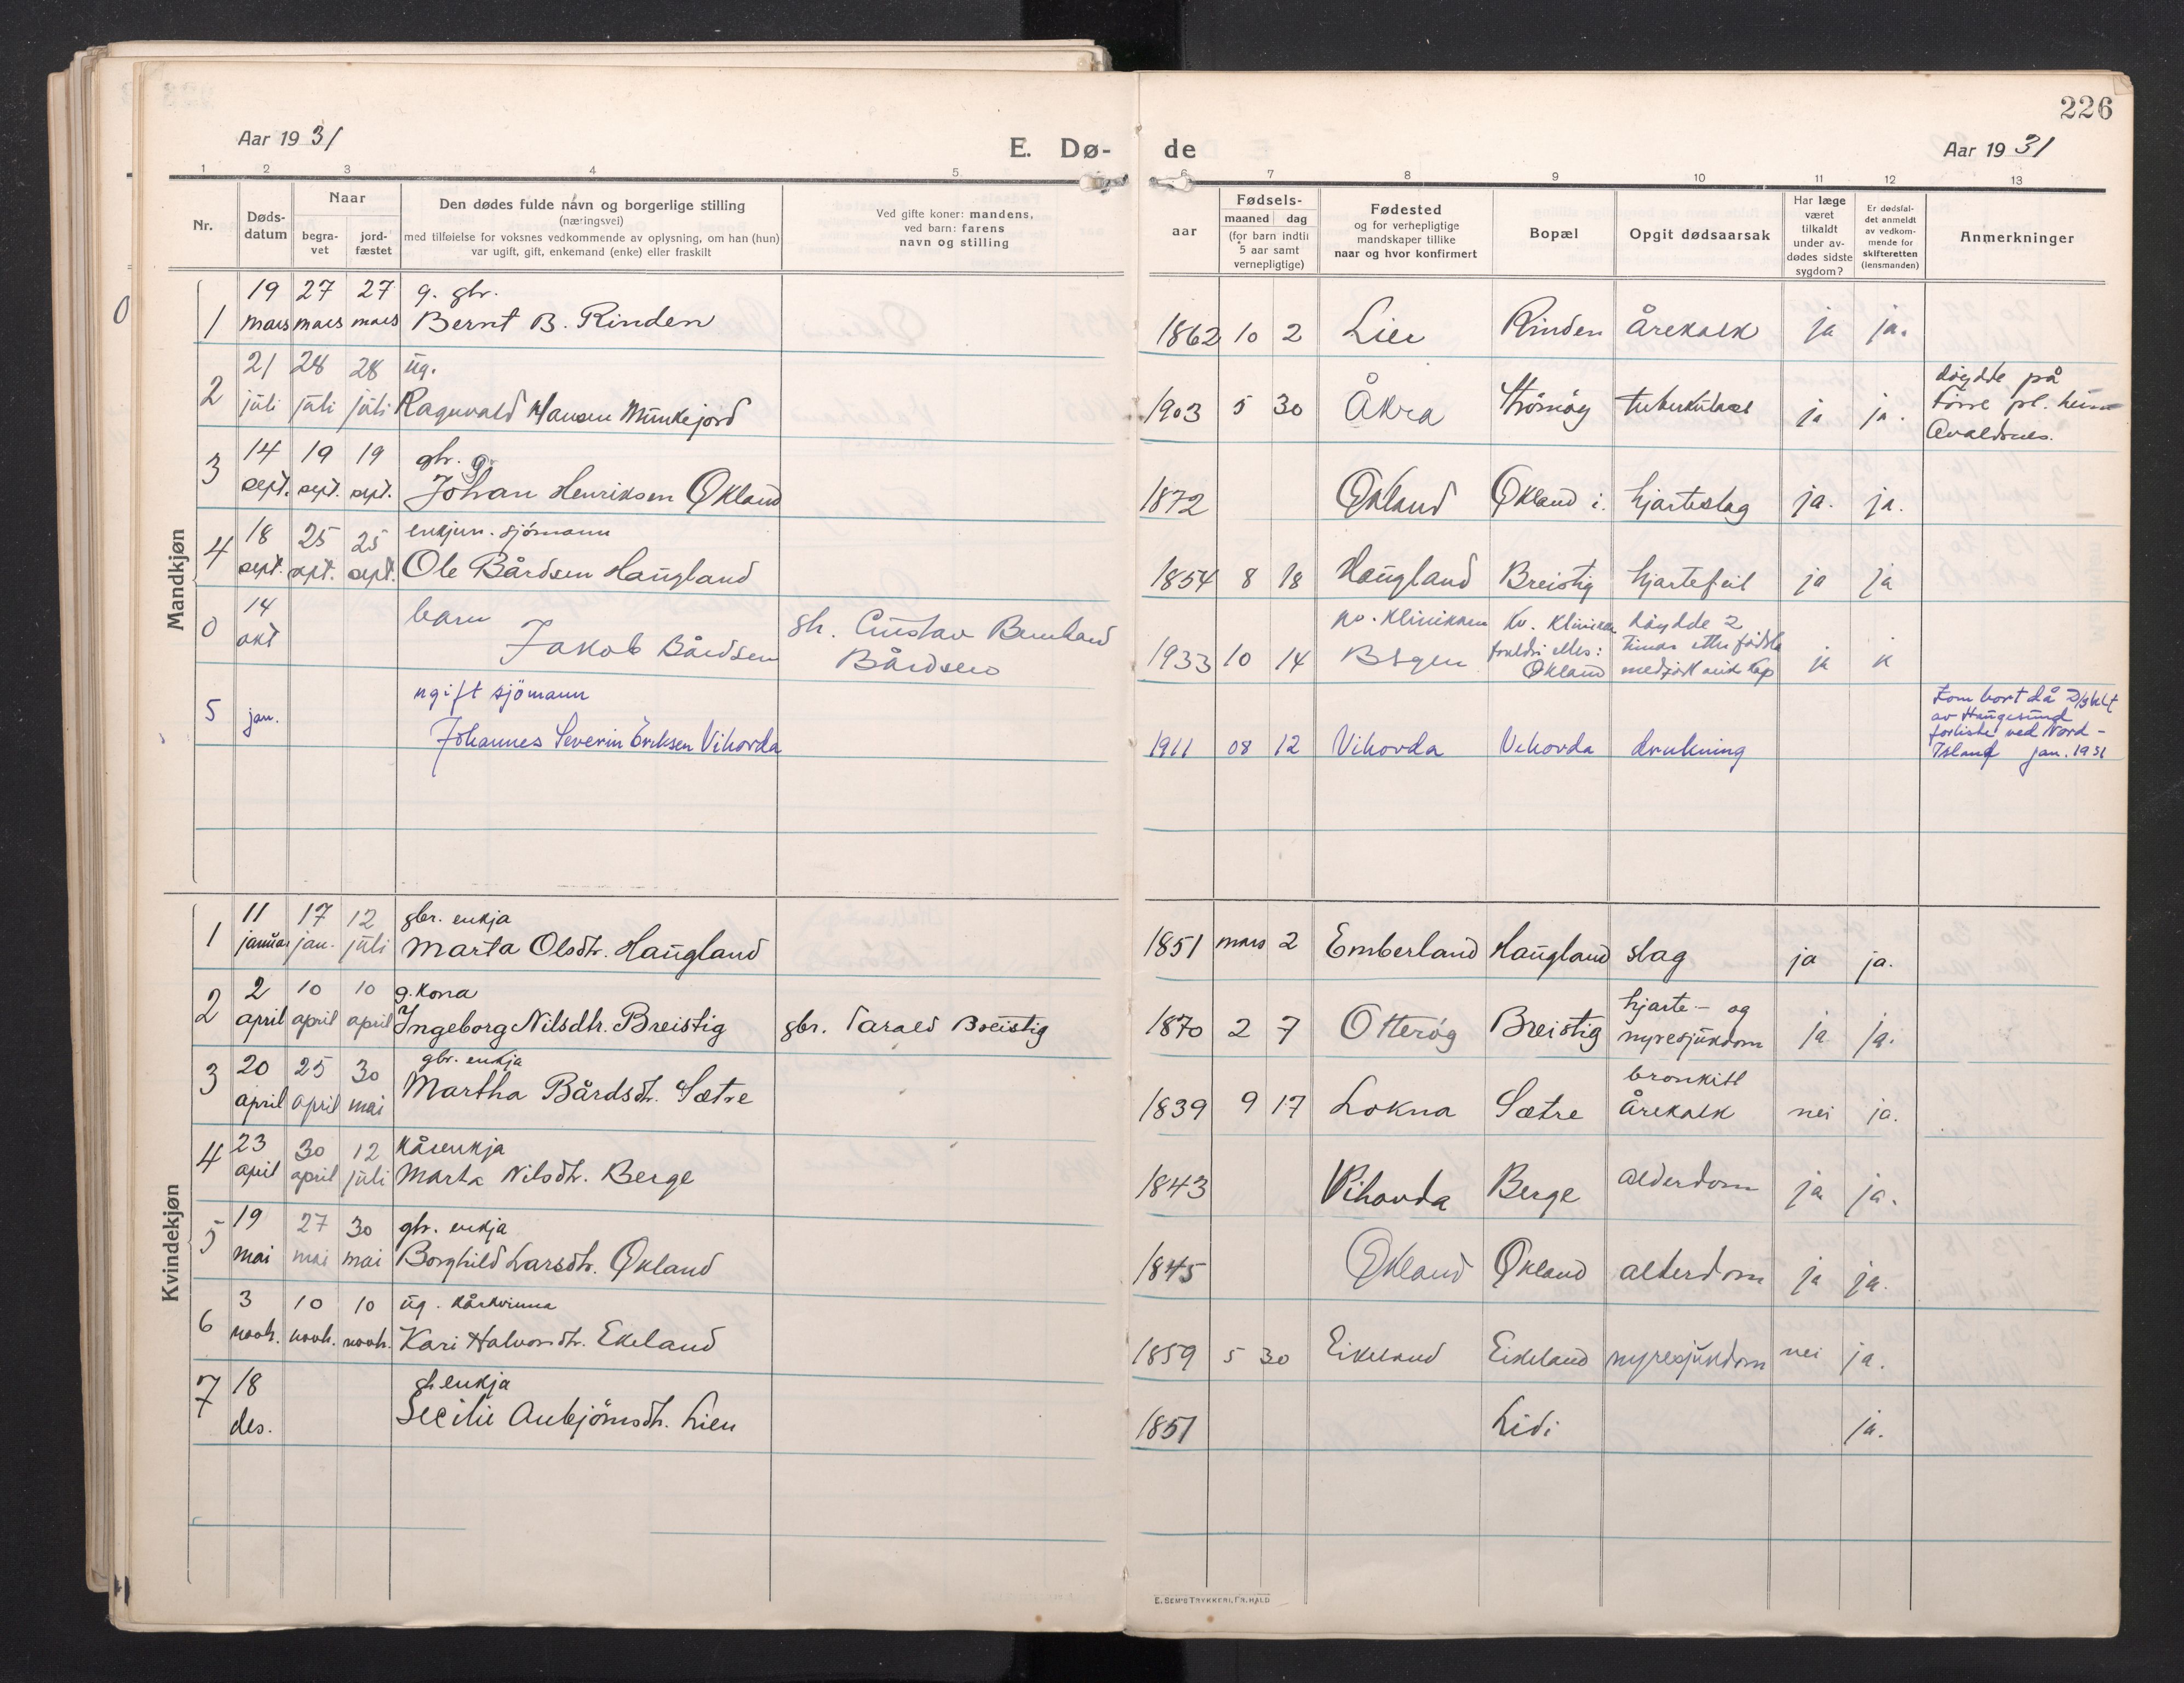 226
Aar 1931
E. Dø-
de
Aar 1931
1 2 3 4 5 6 7 8 9 10 11 12 13
Nr.
Døds-
datum
Naar
begra-
vet
jord-
fæstet
Den dødes fulde navn og borgerlige stilling
(næringsvei)
med tilføielse for voksnes vedkommende av oplysning, om han (hun)
var ugift, gift, enkemand (enke) eller fraskilt
Ved gifte koner: mandens,
ved barn: farens
navn og stilling
Fødsels-
aar
maaned dag
(for barn indtil
5 aar samt
vernepligtige)
Fødested
og for verhepligtige
mandskaper tillike
naar og hvor konfirmert
Bopæl
Opgit dødsaarsak
Har læge
været
tilkaldt
under av-
dødes sidste
sygdom?
Er dødsfal-
det anmeldt
av vedkom-
mende for
skifteretten
(lensmanden)
Anmerkninger
Mandkjøn
19 27 27 g. gbr.
1 mars mars mars Bernt B. Rinden 1862 10 2 Lier Rinden Årekalk ja ja.
21 28 28 ug. døydde på
2 juli juli juli Ragnvald Hansen Munkejord 1903 5 30 Åkra Strömöy tuberkulose ja ja. pl. heim
Avaldsnes.
14 19 19 gbr. g.
3 sept. sept. sept. Johan Henriksen Økland 1872 Økland Økland i. hjarteslag ja. ja.
18 25 25 enkjem. sjömann
4 sept. sept. sept. Ole Bårdsen Haugland 1854 8 18 Haugland Breistig hjartefeil ja ja
14 barn gbr. Gustav Bernhard kv. klinikken kv. klinikken döydde 2
0 okt Jakob Bårdsen Bårdsen 1933 10 14 Bergen foreldri elles: timar etter fødsla ja
Økland
ugift sjömann Kom bort då
5 jan. Johannes Severin Eriksen Vihovda 1911 08 12 Vihovda Vihovda drukning av Haugesund
forliste ved Nord-
Island jan. 1931
Kvindekjøn
11 17 12 gbr. enkja
1 januar jan. juli Marta Olsdtr. Haugland 1851 mars 2 Emberland Haugland slag ja ja.
2 10 10 g. kona hjarte- og
2 april april april Ingeborg Nilsdtr. Breistig gbr. Tarald Breistig 1870 2 7 Otteröy Breistig nyresjukdom ja ja.
20 25 30 gbr. enkja bronkitt
3 april april mai Martha Bårdsdtr. Sætre 1839 9 17 Lokna Sætre Årekalk nei ja.
23 30 12 kårenkja
4 april april juli Marta Nilsdtr. Berge 1843 Vihovda Berge alderdom ja ja.
19 27 30 gbr. enkja
5 mai mai mai Borghild Larsdtr. Økland 1845 Økland Økland alderdom ja ja.
3 10 10 ug. kårkvinna
6 novb. novb. novb. Kari Halvorsdtr. Ekeland 1859 5 30 Eikeland Eikeland nyresjukdom nei ja.
18 gb enkja
7 des. Secilie Anbjörnsdtr. Lien 1851 Lidi ja.
E. SEM'S TRYKKERI, FR.HALD